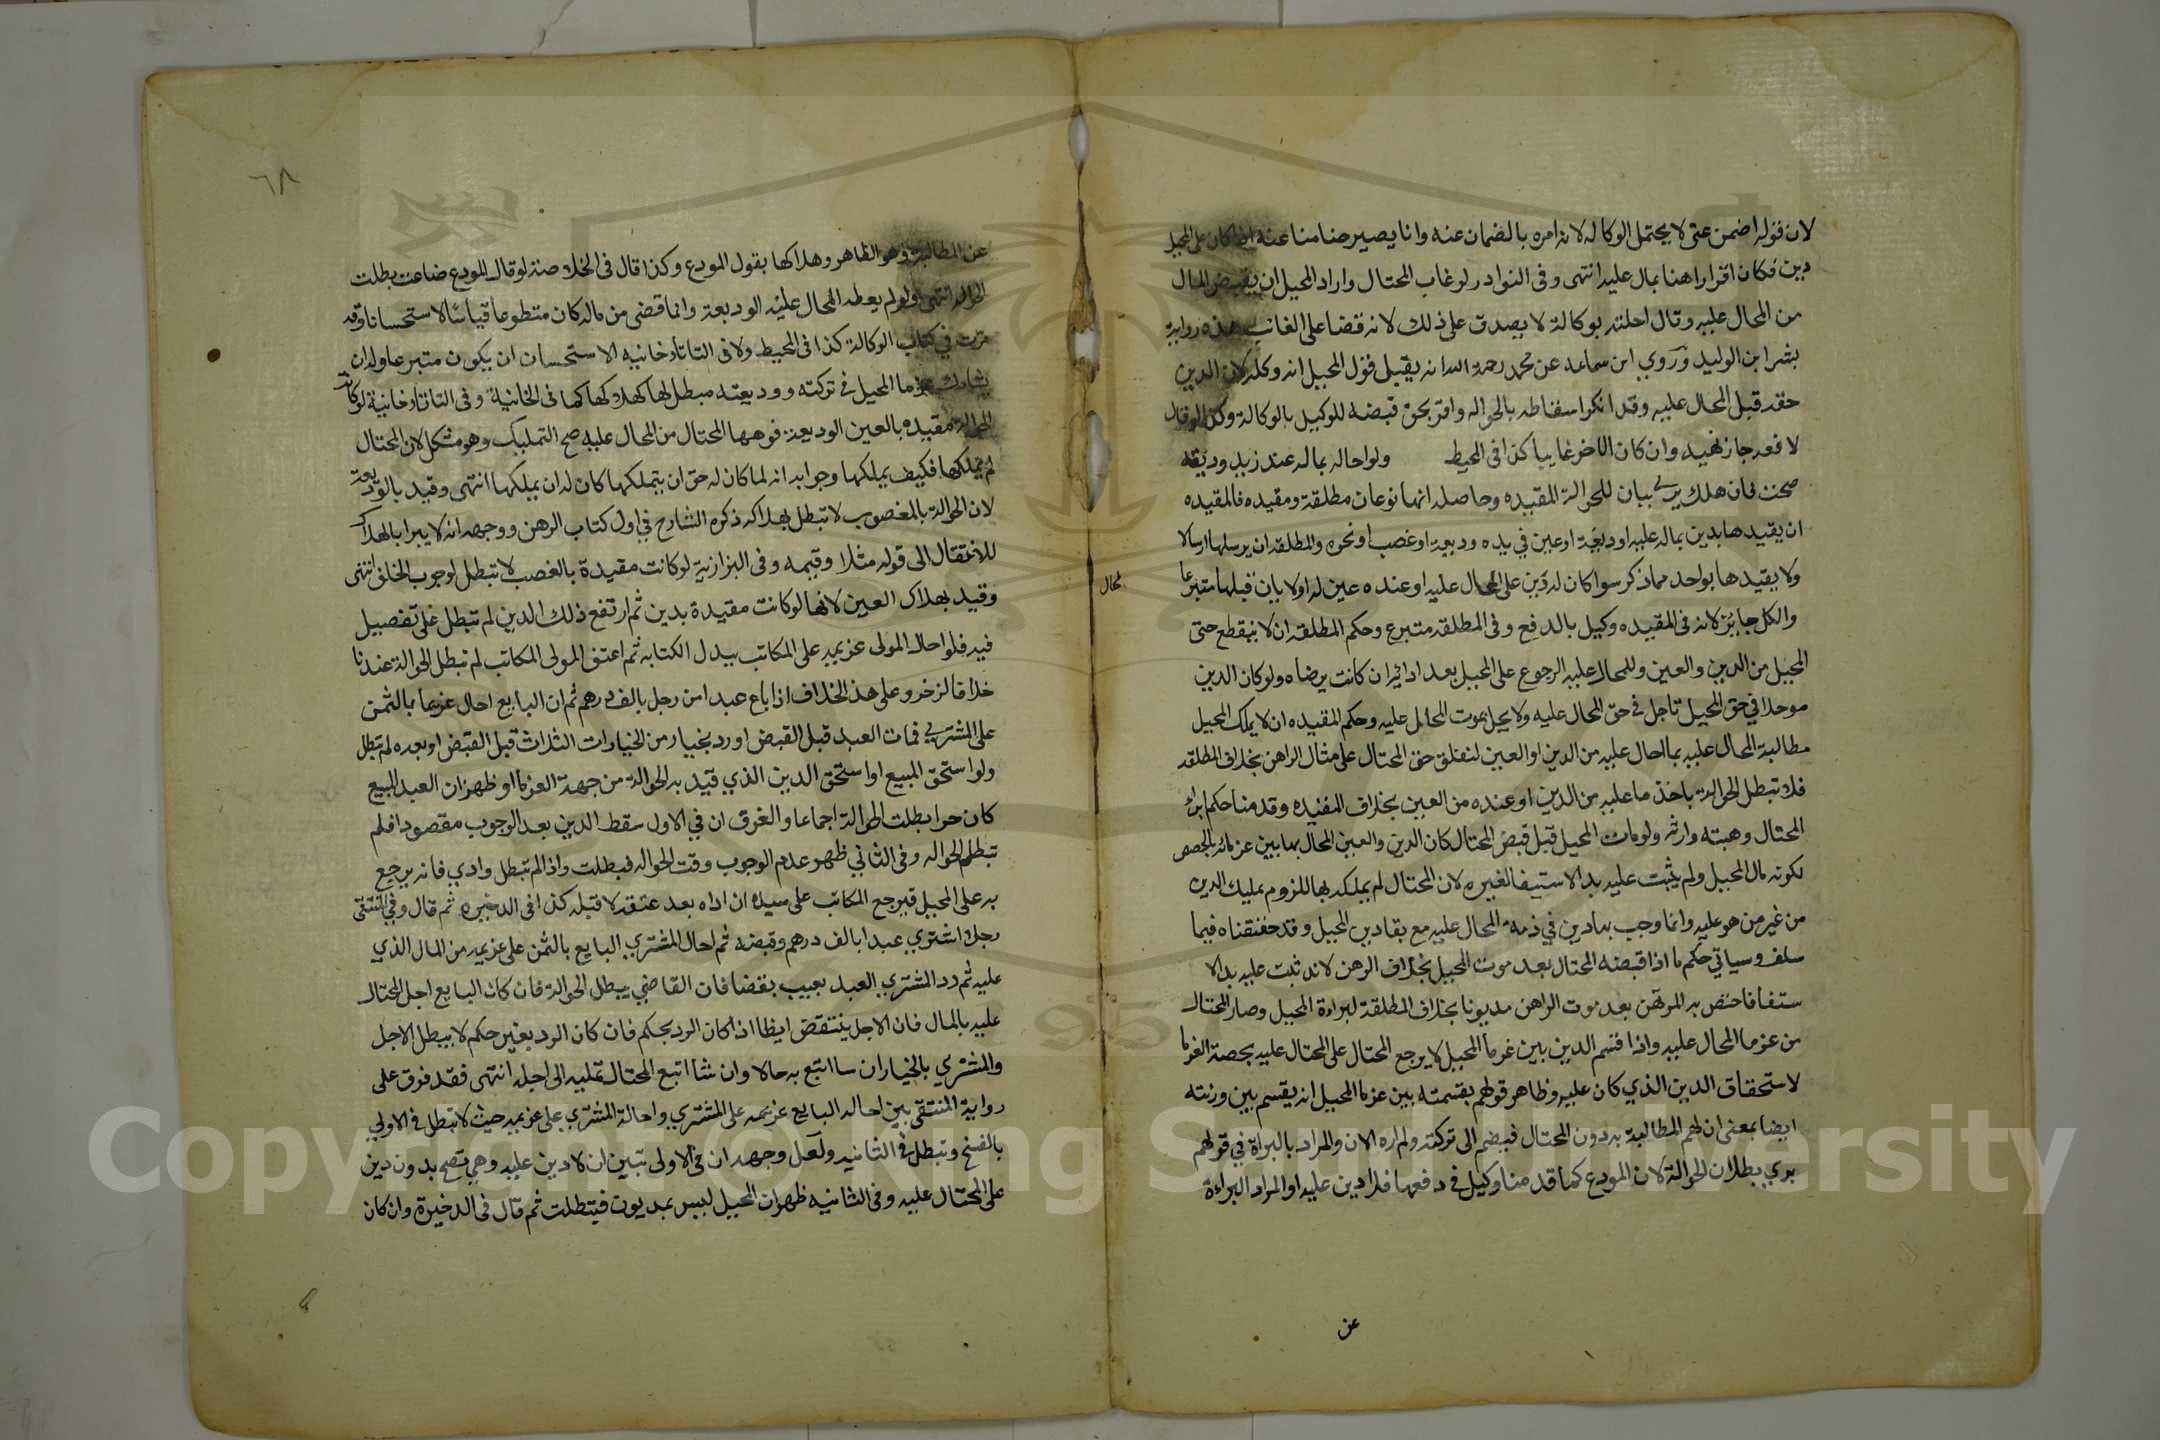 لان قوله اضمن عني لا يحتمل الوكالة لانه امره بالضمان عنه وانما يصير ضامنا عنه اذا كان على المحيل
دين فكان اقرارا هنا بمال عليه انتهى وفى النوادر لو غاب المحتال واراد المحيل ان يقبض المال
من المحال عليه وقال احلته بوكالة لا يصدق على ذلك لانه قضا على الغائب هذه رواية
بشر ابن الوليد وروي ابن سماعه عن محمد رحمه الله انه يقبل قول المحيل انه وكله لان الدين
حقه قبل المحال عليه وقد انكر اسقاطه بالحواله واقر بحق قبضه للوكيل بالوكالة وكذا لو قال
لا فعه جاز نهيه وان كان الاخر غايبا كذا فى المحيط ولو احاله بماله عند زيد وديعة
صحت فان هلك بري بيان للحوالة المقيده وحاصله انها نوعان مطلقة ومقيده فالمقيده
ان يقيدها بدين بماله عليه او ديعة او عين في يده وديعة او غصب او نحوه والمطلقه ان يرسلها ارسالا
ولا يقيدها بواحد مما ذكر سوا كان له دين على المحال عليه او عنده عين له او لا بان قبلها متبرعا
محال
والكل جايز لانه فى المقيده وكيل بالدفع وفى المطلقه متبرع وحكم المطلقه ان لا ينقطع حتى
المحيل من الدين والعين وللمحال عليه الرجوع على المحيل بعد ادائه ان كانت برضاه ولو كان الدين
موجلا في حق المحيل تاجل في حق المحال عليه ولا يحل بموت المحال عليه وحكم المقيده ان لا يملك المحيل
مطالبة المحال عليه بما احال عليه من الدين او العين لتعلق حق المحتال على مثال الراهن بخلاف المطلقه
فلا تبطل الحوالة باخذ ما عليه من الدين او عنده من العين بخلاف المقيده وقدمنا حكم ابراء
المحتال وهبته وارثه ولو مات المحيل قبل قبض المحتال كان الدين والعين المحال بها بين غرمائه بالحصص
لكونه مال المحيل ولم يثبت عليه يد الاستيفا لغيره لان المحتال لم يملكه بها للزوم تمليك الدين
من غير من هو عليه وانما وجب بها دين في ذمة المحال عليه مع بقا دين المحيل وقد حققناه فيما
سلف وسياتي حكم ما اذا قبضه المحتال بعد موت المحيل بخلاف الرهن لانه ثبت عليه يد الا
ستفا فاختص به المرتهن بعد موت الراهن مديونا بخلاف المطلقة لبراءة المحيل وصار المحتال
من غرما المحال عليه واذا قسم الدين بين غرما المحيل لا يرجع المحتال على المحتال عليه بحصة الغرما
لاستحقاق الدين الذي كان عليه وظاهر قولهم بقسمته بين غرما المحيل انه يقسم بين ورثته
ايضا بمعنى ان لهم المطالبة به دون المحتال فيضم الى تركته ولم اره الان والمراد بالبراة في قولهم
بري بطلان الحوالة لان المودع كما قدمنا وكيل في دفعها فلا دين عليه او المراد البراءة
عن
٦٨
عن المطالبة وهو الظاهر وهلاكها بقول المودع وكذا قال فى الخلاصة لو قال المودع ضاعت بطلت
الحواله انتهى ولو لم يعط المحال عليه الوديعة وانما قضى من ماله كان متطوعا قياسا لا استحسانا وقد
مرت في كتاب الوكالة كذا فى المحيط وفى التاتارخانيه الاستحسان ان يكون متبرعا وله ان
يشارك غرما المحيل في تركته ووديعته مبطل لها كهلاكها كما فى الخانية وفى التاتارخانية لو كانت
الحوالة مقيده بالعين الوديعة فوهبها المحتال من المحال عليه صح التمليك وهو مشكل لان المحتال
لم يملكها فكيف يملكها وجوابه انه لما كان له حق ان يتملكها كان له ان يملكها انتهى وقيد بالوديعة
لان الحوالة بالمغصوب لا تبطل بهلاكه ذكره الشارح في اول كتاب الرهن ووجهه انه لا يبرا بالهلاك
للانتقال الى قوله مثلا وقيمه وفى البزازية لو كانت مقيدة بالغصب لا تبطل لوجوب الخلف انتهى
وقيد بهلاك العين لانها لو كانت مقيدة بدين ثم ارتفع ذلك الدين لم تبطل على تفصيل
فيه فلو احال المولى غريمه على المكاتب ببدل الكتابه ثم اعتق المولى المكاتب لم تبطل الحوالة عندنا
خلافا لزفر وعلى هذا الخلاف اذا باع عبدا من رجل بالف درهم ثم ان البايع احال غريما بالثمن
على المشتري فمات العبد قبل القبض او رد بخيار من الخيارات الثلاث قبل القبض او بعده لم تبطل
ولو استحق المبيع او استحق الدين الذي قيد به الحوالة من جهة الغرما او ظهر ان العبد المبيع
كان حرا بطلت الحوالة اجماعا والفرق ان في الاول سقط الدين بعد الوجوب مقصودا فلم
تبطل الحواله وفى الثاني ظهر عدم الوجوب وقت الحواله فبطلت واذا لم تبطل وادي فانه يرجع
به على المحيل فيرجع المكاتب على سيده ان اداه بعد عتقه لا قبله كذا فى الدخيره ثم قال وفي المنتقى
رجل اشتري عبدا بالف درهم وقبضه ثم احال المشتري البايع بالثمن على غريمه من المال الذي
عليه ثم رد المشتري العبد بعيب بقضا فان القاضي يبطل الحوالة فان كان البايع اجل المحتال
عليه بالمال فان الاجل ينتقض ايظا اذا كان الرد بحكم فان كان الرد بغير حكم لا يبطل الاجل
والمشتري بالخيار ان سا اتبع به حالا وان شا اتبع المحتال عليه الى اجله انتهى فقد فرق على
رواية المنتقى بين احاله البايع غريمه على المشتري واحالة المشتري على غريمه حيث لا تبطل في الاولي
بالفسخ وتبطل في الثانيه ولعل وجهه ان في الاولى تبين ان لا دين عليه وهي تصح بدون دين
على المحتال عليه وفى الثانيه ظهر ان المحيل ليس بمديون فتبطلت ثم قال فى الدخيرة وان كان